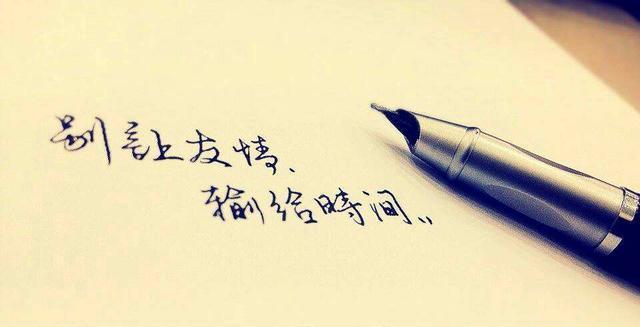 别讓友情、
输给時间..